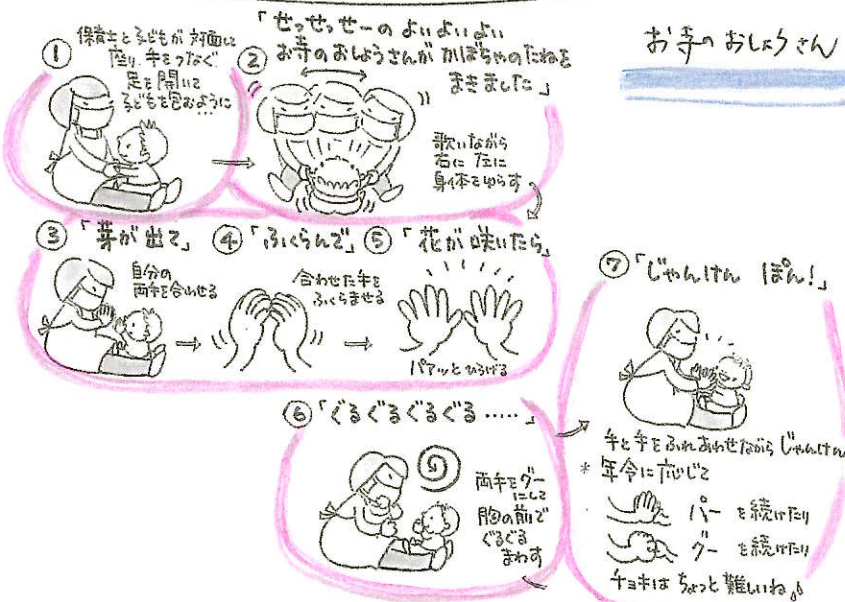 お寺の おしょうさん
①
保育士と子どもが 対面に
座り、手をつなぐ
足を開いて
子どもを包むように
…
②
「せっせっせーの よいよいよい
お寺のおしょうさんが かぼちゃのたねを
まきました」
歌いながら
右に 左に
身体をゆらす
③「芽が出て」
自分の
両手を合わせる
④「ふくらんで」
合わせた手を
ふくらませる
⑤「花が咲いたら」
パアッとひろげる
⑥「ぐるぐるぐるぐる……」
両手をグー
にして
胸の前で
ぐるぐる
まわす
⑦「じゃんけん ぽん!」
手と手をふれあわせながら じゃんけん
* 年令に応じて
パー を続けたり
グー を続けたり
チョキは ちょっと 難しいね♪